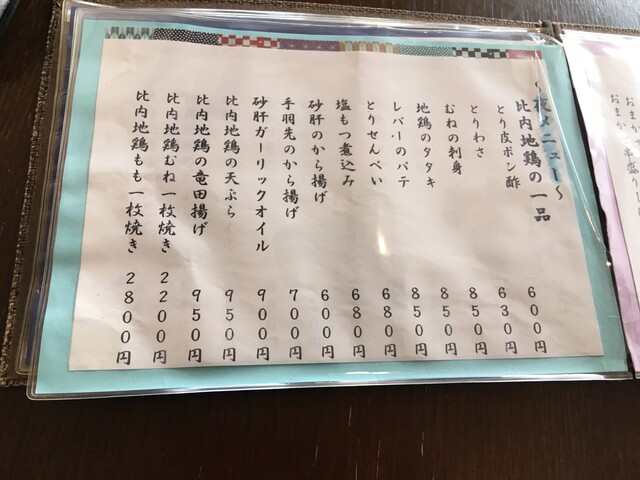 ～夜メニュー～
比内地鶏の一品
とり皮ポン酢 600円
とりわさ 630円
むねの刺身 850円
地鶏のタタキ 850円
レバーのパテ 850円
とりせんべい 680円
塩もつ煮込み 680円
砂肝のから揚げ 600円
手羽先のから揚げ 700円
砂肝ガーリックオイル 900円
比内地鶏の天ぷら 950円
比内地鶏の竜田揚げ 950円
比内地鶏むね一枚焼き 2200円
比内地鶏もも一枚焼き 2800円